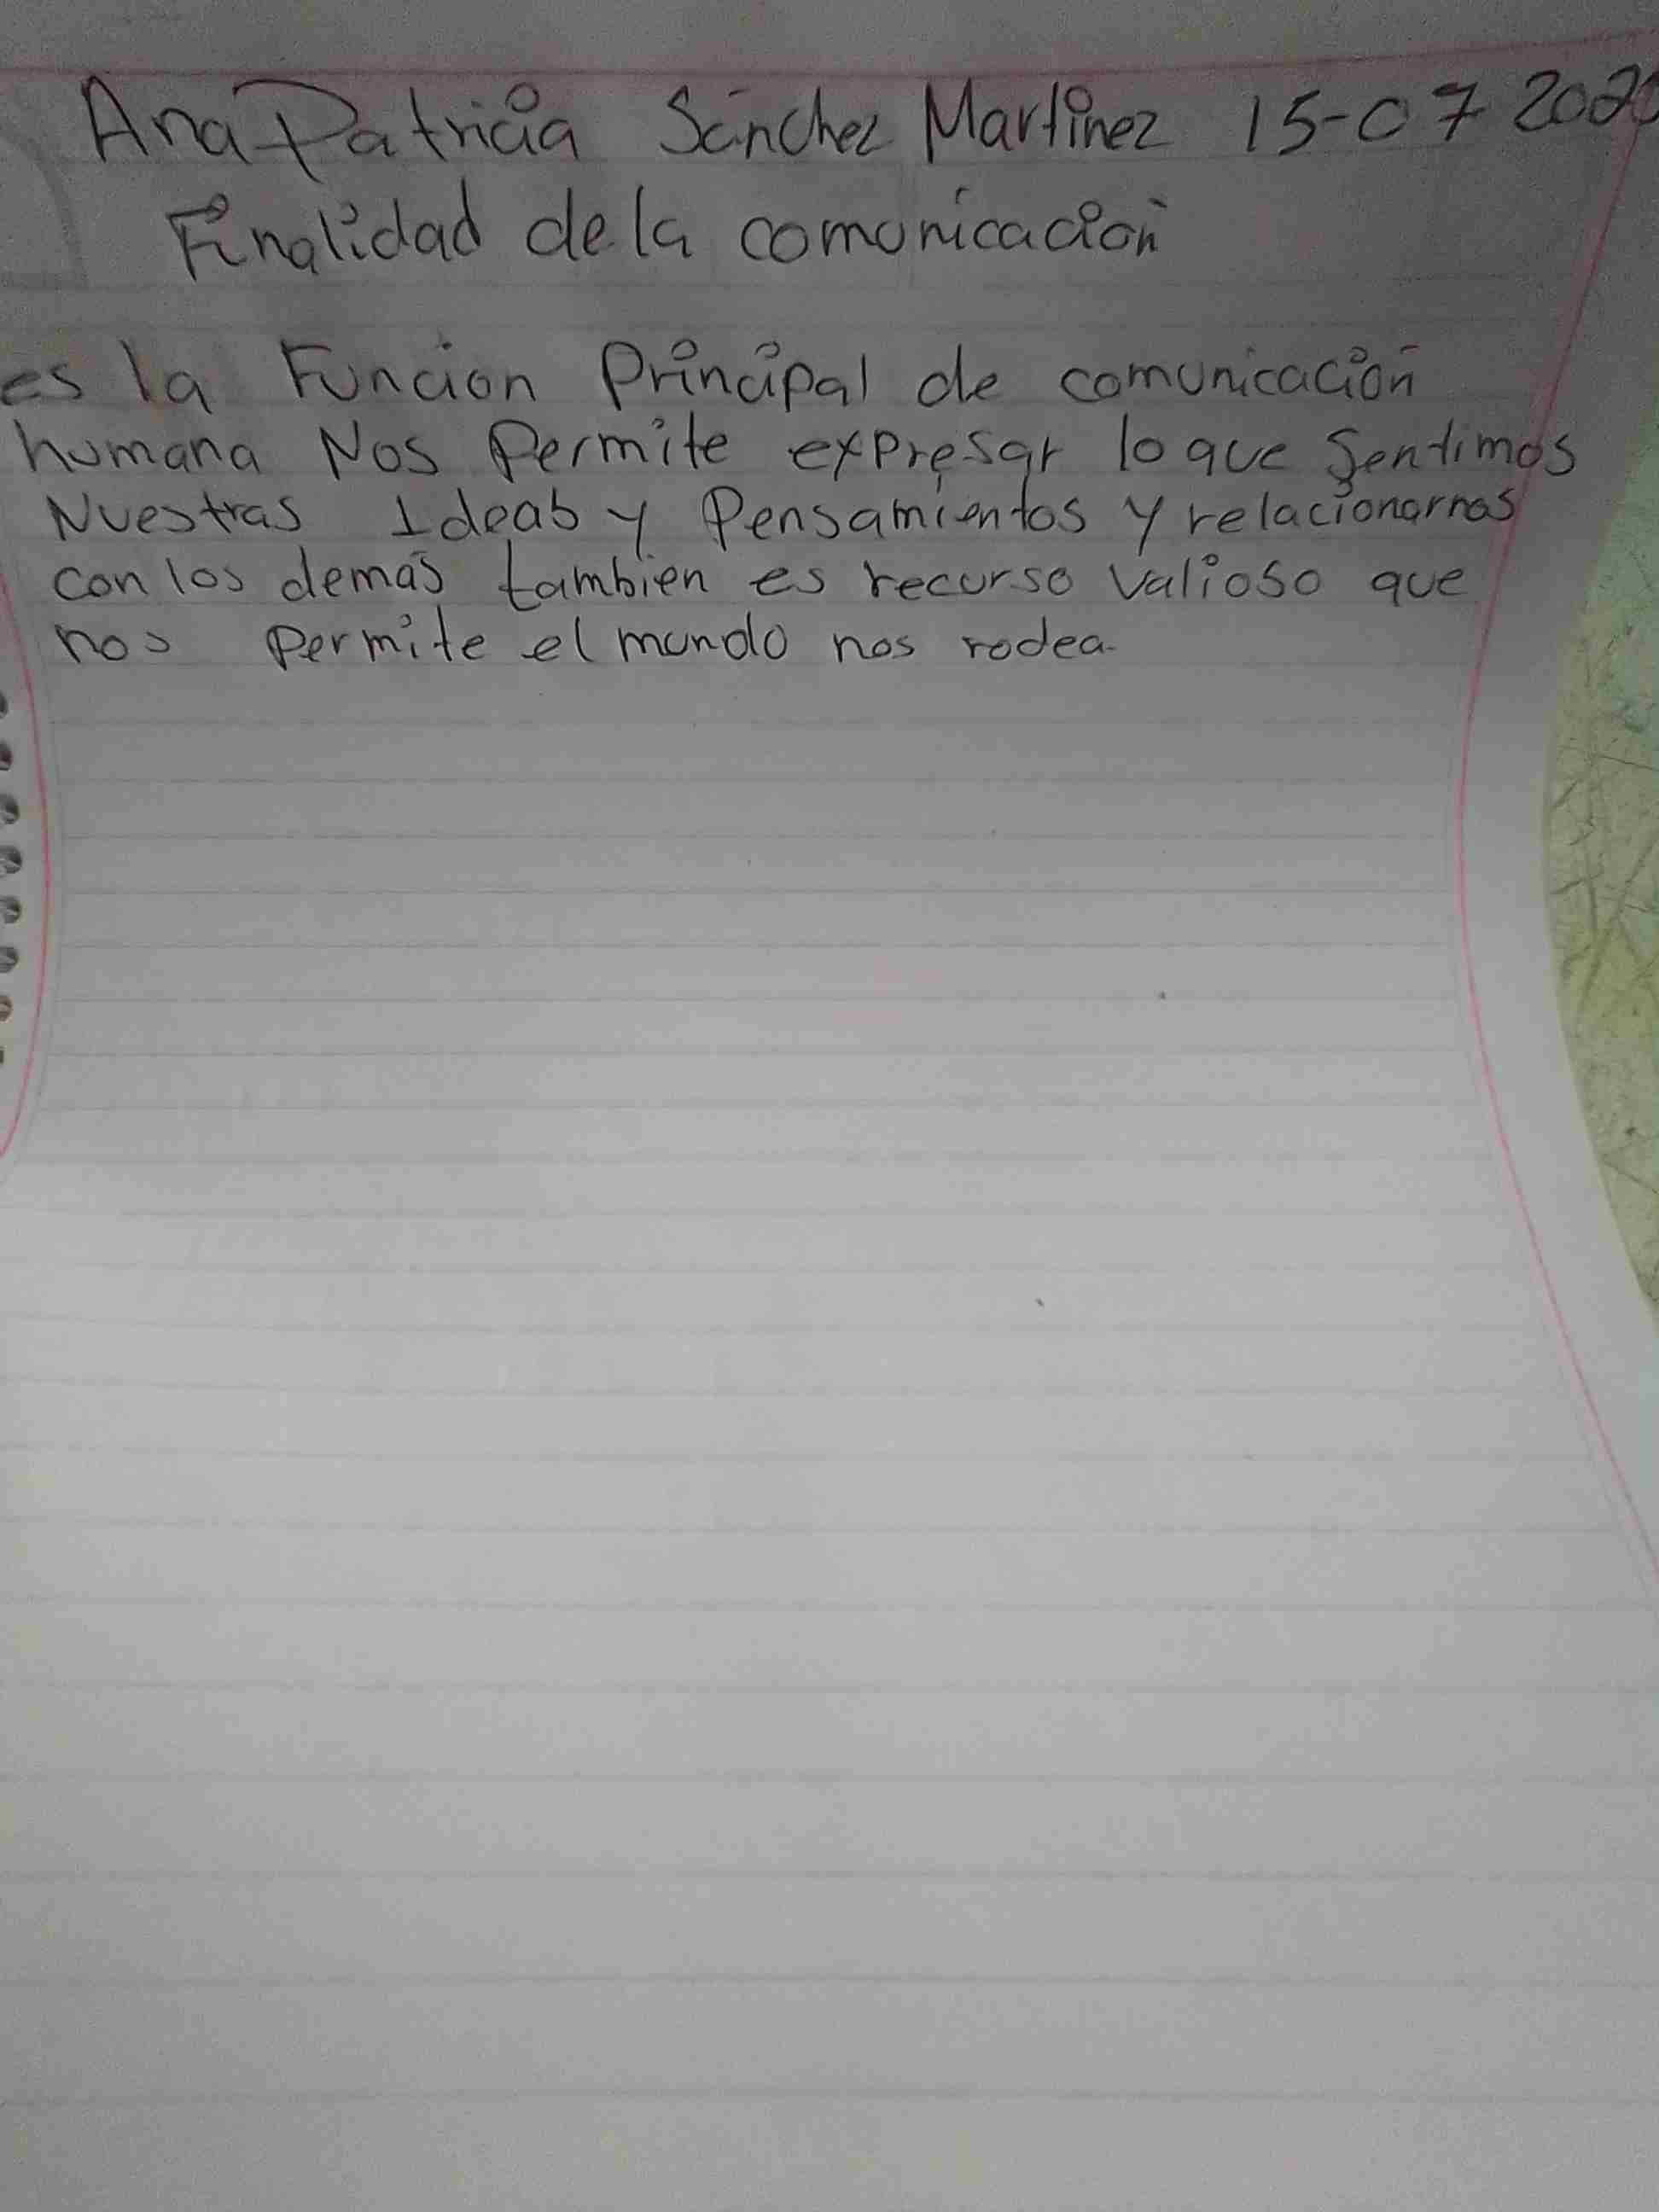 Ana Patricia Sánchez Martinez 15-07 2020
Finalidad de la comunicación
es la Función Principal de comunicación
humana Nos Permite expresar lo que Sentimos
Nuestras Ideas y Pensamientos y relacionarnos
con los demás tambien es recurso valioso que
nos permite el mundo nos rodea.